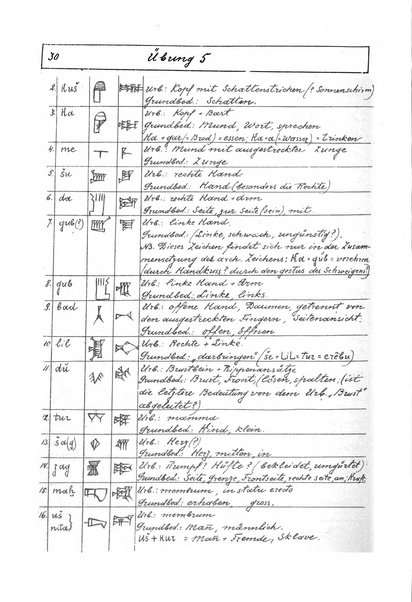 30 Übung 5
2. Kuš Urb.: Kopf mit Schattenstrichen (? Sonnenschirm)
Grundbed.: Schatten.
3. Ka Urb.: Kopf + Bart
Grundbed.: Mund, Wort, sprechen
Ka + gar (= Brod) = essen; Ka + a (= Wasser) = Trinken
4. me Urb.: Mund mit ausgestreckter Zunge
Grundbed.: Zunge
5. šu Urb.: rechte Hand
Grundbed.: Hand (besonders die Rechte)
6. da Urb.: rechte Hand + Arm
Grundbed.: Seite, zur Seite (sein), mit.
7. gub(?) Urb.: linke Hand.
Grundbed.: (Linke, schwach, ungünstig?).
NB. Dieses Zeichen findet sich nur in der Zusam-
mensetzung des arch. Zeichens: Ka + gub = verehren
(durch Handkuss? durch den Gestus des Schweigens?)
8. gub Urb.: linke Hand + Arm
Grundbed.: Linke, links
9. bad Urb.: offene Hand, Daumen, getrennt von
den ausgestreckten Fingern, Seitenansicht.
Grundbed.: offen, öffnen
10. lil Urb.: Rechte + Linke
Grundbed.: „darbringen" (še + LiL = tur = erēbu)
11. dŭ Urb.: Brustbein + Rippenansätze
Grundbed.: Brust, Front, (lösen, spalten; (ist
die letztere Bedeutung von dem Urb. „Brust"
abgeleitet?)
12. tur Urb.: mamma
Grundbed.: Kind, klein.
13. ša(g) Urb.: Herz (?)
Grundbed.: Herz, mitten, in
14. zag Urb.: Rumpf? Hüfte? (bekleidet, umgürtet)
Grundbed.: Seite, Grenze, Frontseite, rechte Seite, an; Kraft
15. mah Urb.: membrum, in statu erecto
Grundbed.: erhaben, gross.
16. uš Urb.: membrum
nita} Grundbed.: Mañ, männlich.
uš + Kur = Mañ + Fremde, Sklave.